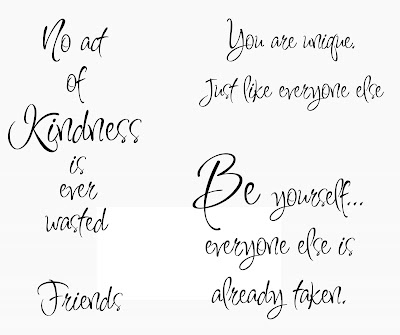 No act
of
Kindness
is
ever
wasted
Friends
You are unique.
Just like everyone else
Be yourself...
everyone else is
already taken.